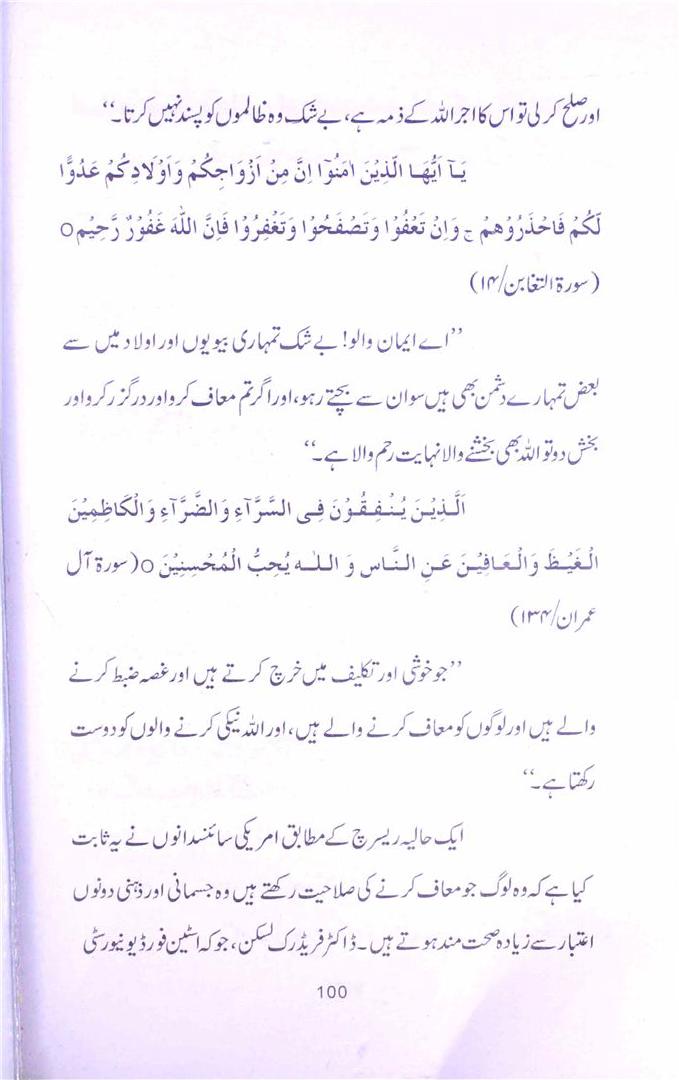 اور صلح کر لی تو اس کا اجر اللہ کے ذمہ ہے، بے شک وہ ظالموں کو پسند نہیں کرتا۔‘‘
يَـآ اَيُّهَـا الَّذِيْنَ اٰمَنُوْٓا اِنَّ مِنْ اَزْوَاجِكُمْ وَاَوْلَادِكُمْ عَدُوًّا
لَّكُمْ فَاحْذَرُوْهُمْ ۚ وَاِنْ تَعْفُوْا وَتَصْفَحُوْا وَتَغْفِرُوْا فَاِنَّ اللّٰهَ غَفُوْرٌ رَّحِيْم ٥
(سورة التغابن/۱۴)
’’اے ایمان والو! بے شک تمہاری بیویوں اور اولاد میں سے
بعض تمہارے دشمن بھی ہیں سو ان سے بچتے رہو، اور اگر تم معاف کرو اور درگزر کرو اور
بخش دو تو اللہ بھی بخشنے والا نہایت رحم والا ہے۔‘‘
اَلَّـذِيْـنَ يُـنْـفِـقُـوْنَ فِـى السَّرَّآءِ وَالضَّرَّآءِ وَالْكَاظِمِيْنَ
الْغَيْظَ وَالْعَافِيْنَ عَنِ النَّاسِ وَ الـلّٰـه يُحِبُّ الْمُحْسِنِيْنَ ٥ (سورۃ آل
عمران/۱۳۴)
’’جو خوشی اور تکلیف میں خرچ کرتے ہیں اور غصہ ضبط کرنے
والے ہیں اور لوگوں کو معاف کرنے والے ہیں، اور اللہ نیکی کرنے والوں کو دوست
رکھتا ہے۔‘‘
ایک حالیہ ریسرچ کے مطابق امریکی سائنسدانوں نے یہ ثابت
کیا ہے کہ وہ لوگ جو معاف کرنے کی صلاحیت رکھتے ہیں وہ جسمانی اور ذہنی دونوں
اعتبار سے زیادہ صحت مند ہوتے ہیں۔ ڈاکٹر فریڈرک لسکن، جو کہ اسٹین فورڈ یونیورسٹی
100